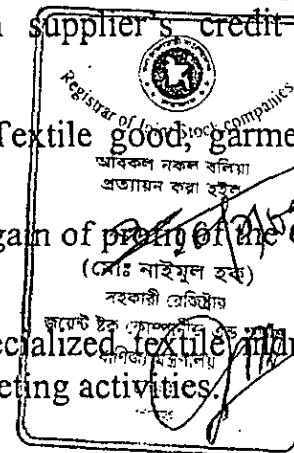 supplier's credit
Registrar of Joint Stock Companies
Textile good, garme
অবিকল নকল বলিয়া
প্রত্যায়ন করা হইল
gain of profit of the
(মোঃ নাইমুল হক)
সহকারী রেজিষ্ট্রার
জয়েন্ট ষ্টক কোম্পানীজ এন্ড
ecialized textile indu
বাণিজ্য মন্ত্রণালয়
eting activities.